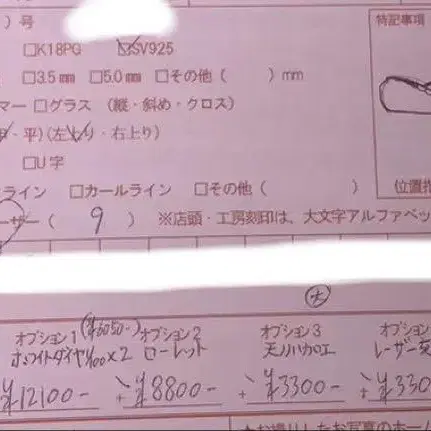 )号
特記事項
□K18PG ☑SV925
□3.5mm □5.0mm □その他( )mm
マー □グラス (縦・斜め・クロス)
・平)(左上り・右上り)
□U字
ライン □カールライン □その他( )
位置指
ーザー( 9 ) ※店頭・工房刻印は、大文字アルファベッ
大
オプション1 (¥6050-) オプション2 オプション3 オプション
ホワイトダイヤ1/100×2 ローレット 天ノハカロエ レーザー
¥12100- + ¥8800- + ¥3300- + ¥330